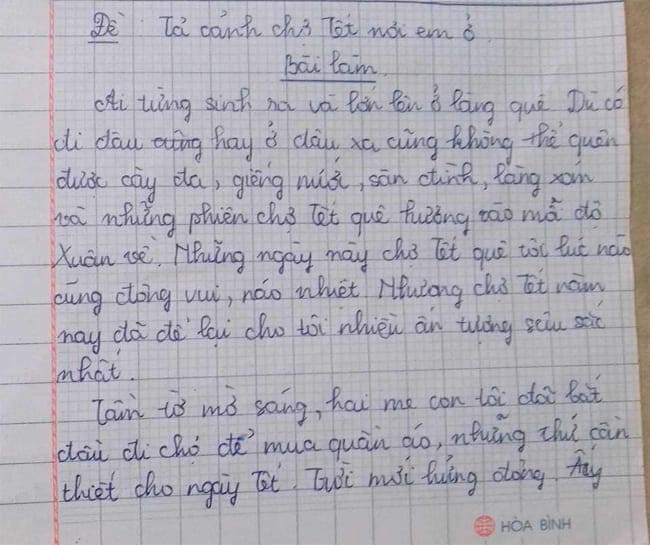 Đề: Tả cảnh chợ Tết nơi em ở.
Bài làm
Ai từng sinh ra và lớn lên ở làng quê Dù có
đi đâu cũng hay ở đâu xa cũng không thể quên
được cây đa, giếng nước, sân đình, làng xóm
và những phiên chợ Tết quê hương vào mỗi độ
Xuân về. Những ngày này chợ Tết quê tôi lúc nào
cũng đông vui, náo nhiệt Nhưng chợ Tết năm
nay đã để lại cho tôi nhiều ấn tượng sâu sắc
nhất.
Tầm tờ mờ sáng, hai mẹ con tôi đã bắt
đầu đi chợ để mua quần áo, những thứ cần
thiết cho ngày Tết. Trời mới hửng đông
HÒA BÌNH